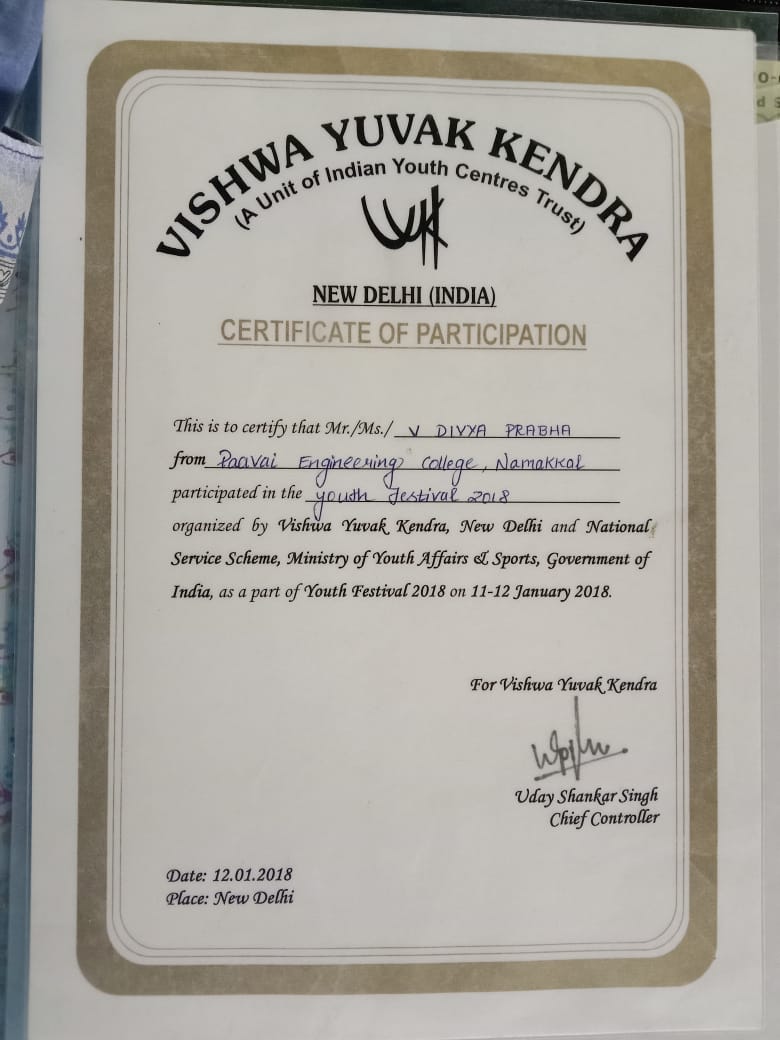 VISHWA YUVAK KENDRA
(A Unit of Indian Youth Centres Trust)
NEW DELHI (INDIA)
CERTIFICATE OF PARTICIPATION
This is to certify that Mr./Ms./ V DIVYA PRABHA
from Paavai Engineering College, Namakkal
participated in the youth festival 2018
organized by Vishwa Yuvak Kendra, New Delhi and National
Service Scheme, Ministry of Youth Affairs & Sports, Government of
India, as a part of Youth Festival 2018 on 11-12 January 2018.
For Vishwa Yuvak Kendra
Uday Shankar Singh
Chief Controller
Date: 12.01.2018
Place: New Delhi